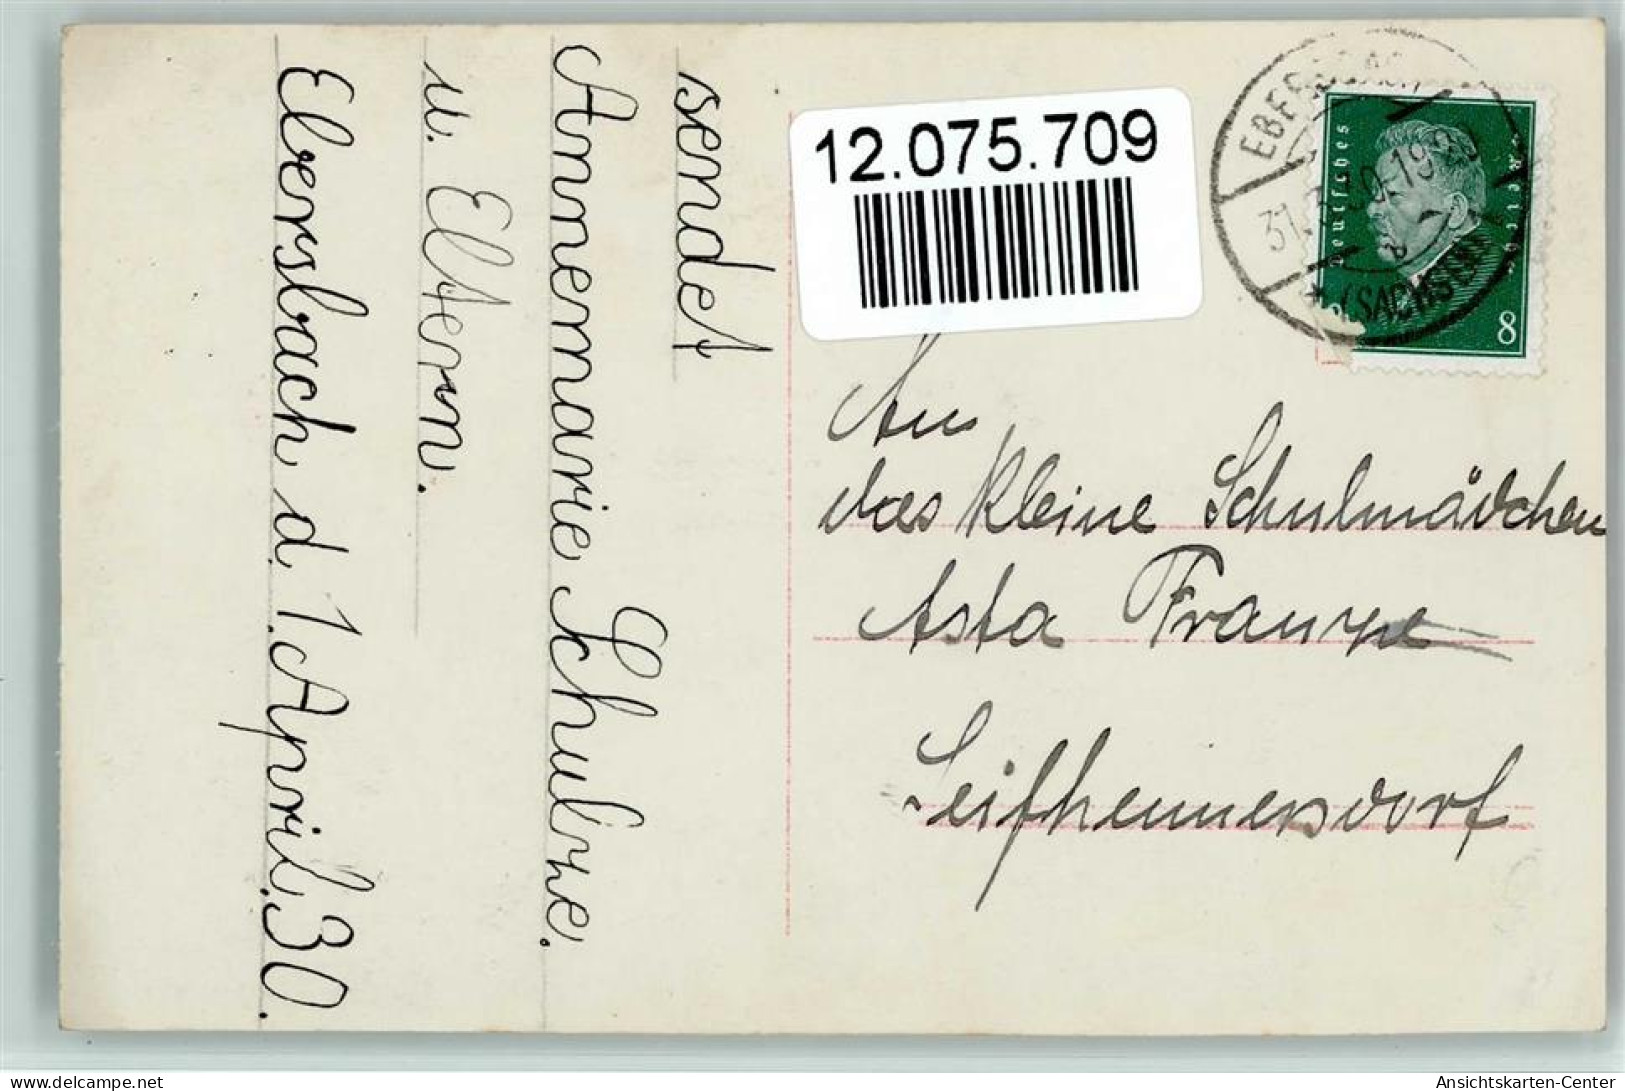 sendet
Annemarie Schulze.
u. Eltern.
Ebersbach d. 1. April. 30.
12.075.709
Deutsches Reich
8
(SACHSEN)
An
das kleine Schulmädchen
Asta Franze
Seifhennersdorf
delcampe.net
Ansichtskarten-Center